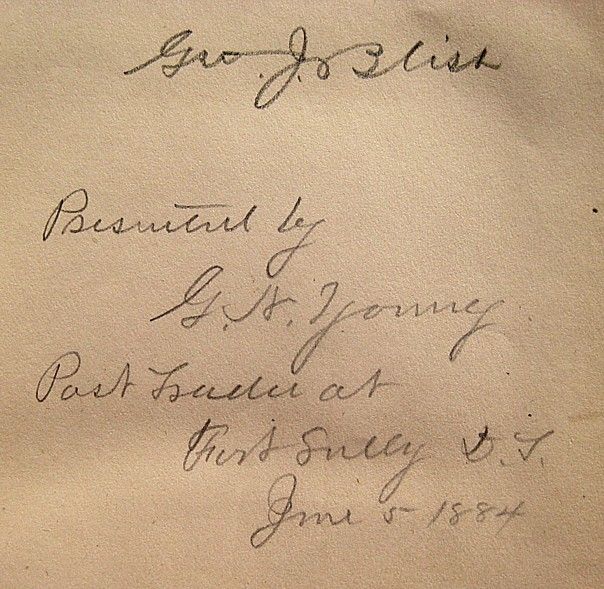 Geo. J. Blish
Presented by
G. H. Young
Post Trader at
Fort Sully D. T.
June 5 1884